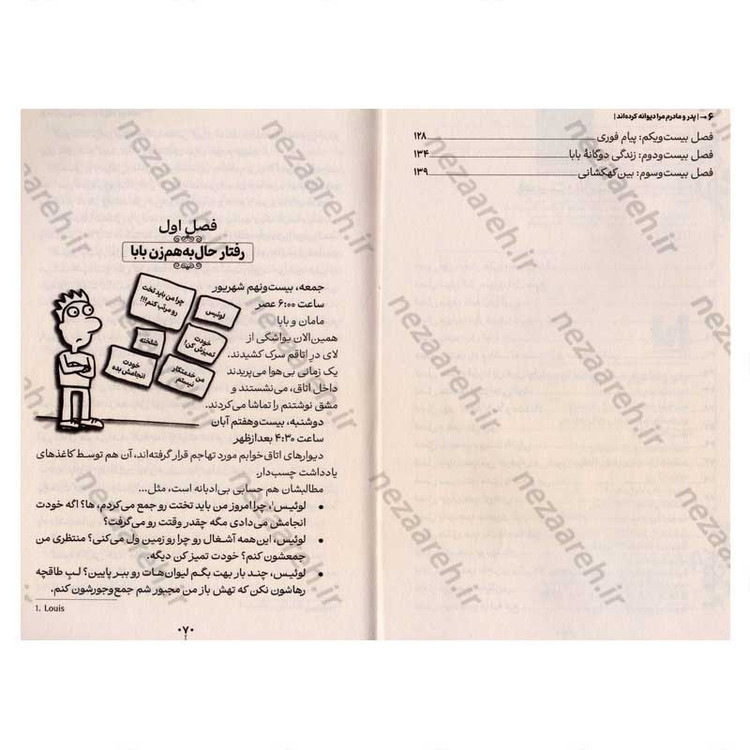 ۶ → | پدر و مادرم مرا دیوانه کرده‌اند |
فصل بیست‌ویکم: پیام فوری ۱۲۸
فصل بیست‌ودوم: زندگی دوگانهٔ بابا ۱۳۴
فصل بیست‌وسوم: بین‌کهکشانی ۱۳۹
فصل اول
رفتار حال‌به‌هم‌زن بابا
جمعه، بیست‌ونهم شهریور
ساعت ۶:۰۰ عصر
مامان و بابا
همین‌الان یواشکی از
لای در اتاقم سرک کشیدند.
یک زمانی بی‌هوا می‌پریدند
داخل اتاق، می‌نشستند و
مشق نوشتنم را تماشا می‌کردند.
چرا من باید تخت
رو مرتب کنم!!!
لوئیس
خودت
تمیزش کن!
شلخته
خودت
انجامش بده
من خدمتکار
نیستم
دوشنبه، بیست‌وهفتم آبان
ساعت ۴:۳۰ بعدازظهر
دیوارهای اتاق‌خوابم مورد تهاجم قرار گرفته‌اند، آن هم توسط کاغذهای
یادداشت چسب‌دار.
مطالبشان هم حسابی بی‌ادبانه است، مثل...
• لوئیس¹، چرا امروز من باید تختت رو جمع می‌کردم، ها؟ اگه خودت
انجامش می‌دادی مگه چقدر وقتت رو می‌گرفت؟
• لوئیس، این‌همه آشغال رو چرا رو زمین ول می‌کنی؟ منتظری من
جمعشون کنم؟ خودت تمیز کن دیگه.
• لوئیس، چند بار بهت بگم لیوان‌هات رو ببر پایین؟ لبِ طاقچه
رهاشون نکن که تهش باز من مجبور شم جمع‌وجورشون کنم.
1. Louis
۰۷۰
nezaareh.ir
nezaareh.ir
nezaareh.ir
nezaareh.ir
nezaareh.ir
nezaareh.ir
nezaareh.ir
nezaareh.ir
nezaareh.ir